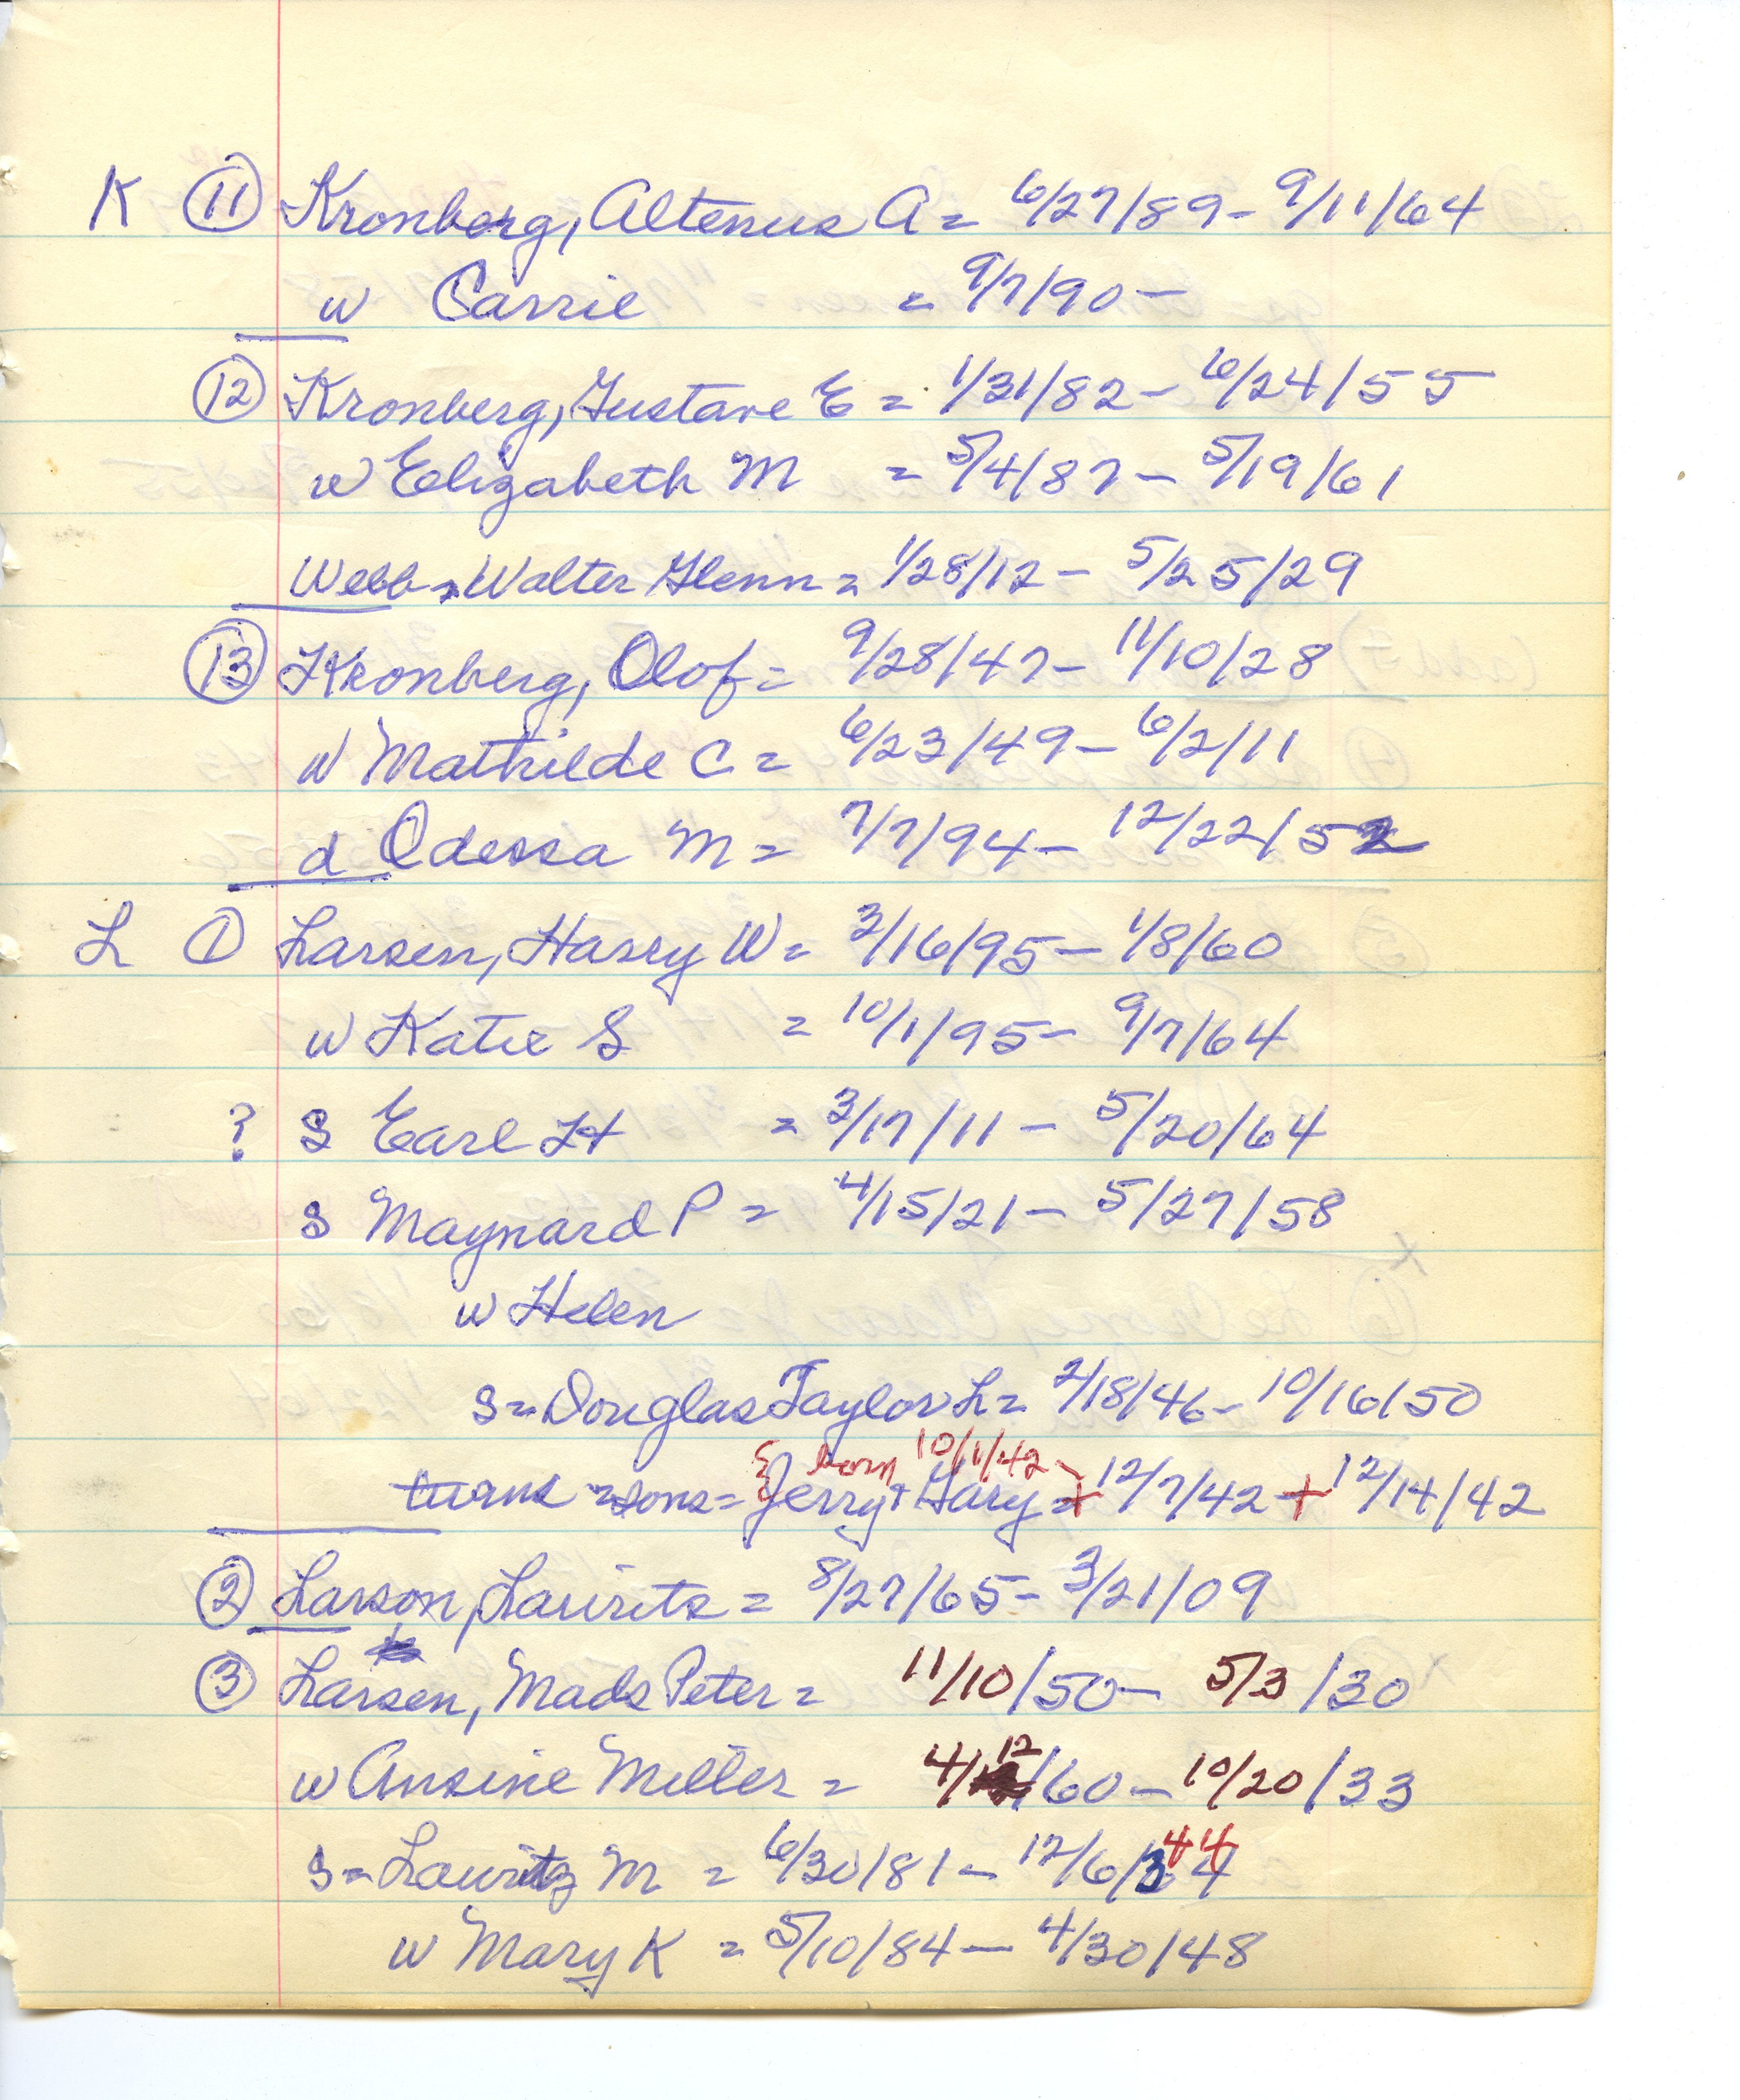 K ⑪ Kronberg, Altenus A = 6/27/89 - 9/11/64
w Carrie = 9/7/90 -
⑫ Kronberg, Gustave E = 1/31/82 - 6/24/55
w Elizabeth M = 5/4/87 - 5/19/61
Webb, Walter Glenn = 1/28/12 - 5/25/29
⑬ Kronberg, Olof = 9/28/47 - 11/10/28
w Mathilde C = 6/23/49 - 6/2/11
d Odessa M = 7/7/94 - 12/22/52
L ① Larsen, Harry W = 3/16/95 - 1/8/60
w Katie S = 10/1/95 - 9/7/64
? s Earl H = 3/17/11 - 5/20/64
s Maynard P = 4/15/21 - 5/27/58
w Helen
s = Douglas Taylor L = 2/18/46 - 10/16/50
born 10/1/42
sons = Jerry + Gary = 12/7/42 + 12/14/42
② Larson, Lauritz = 8/27/65 - 3/21/09
③ Larsen, Mads Peter = 11/10/50 - 5/3/30
w Ansine Miller = 4/12/60 - 10/20/33
s = Lauritz M = 6/30/81 - 12/6/44
w Mary K = 5/10/84 - 4/30/48